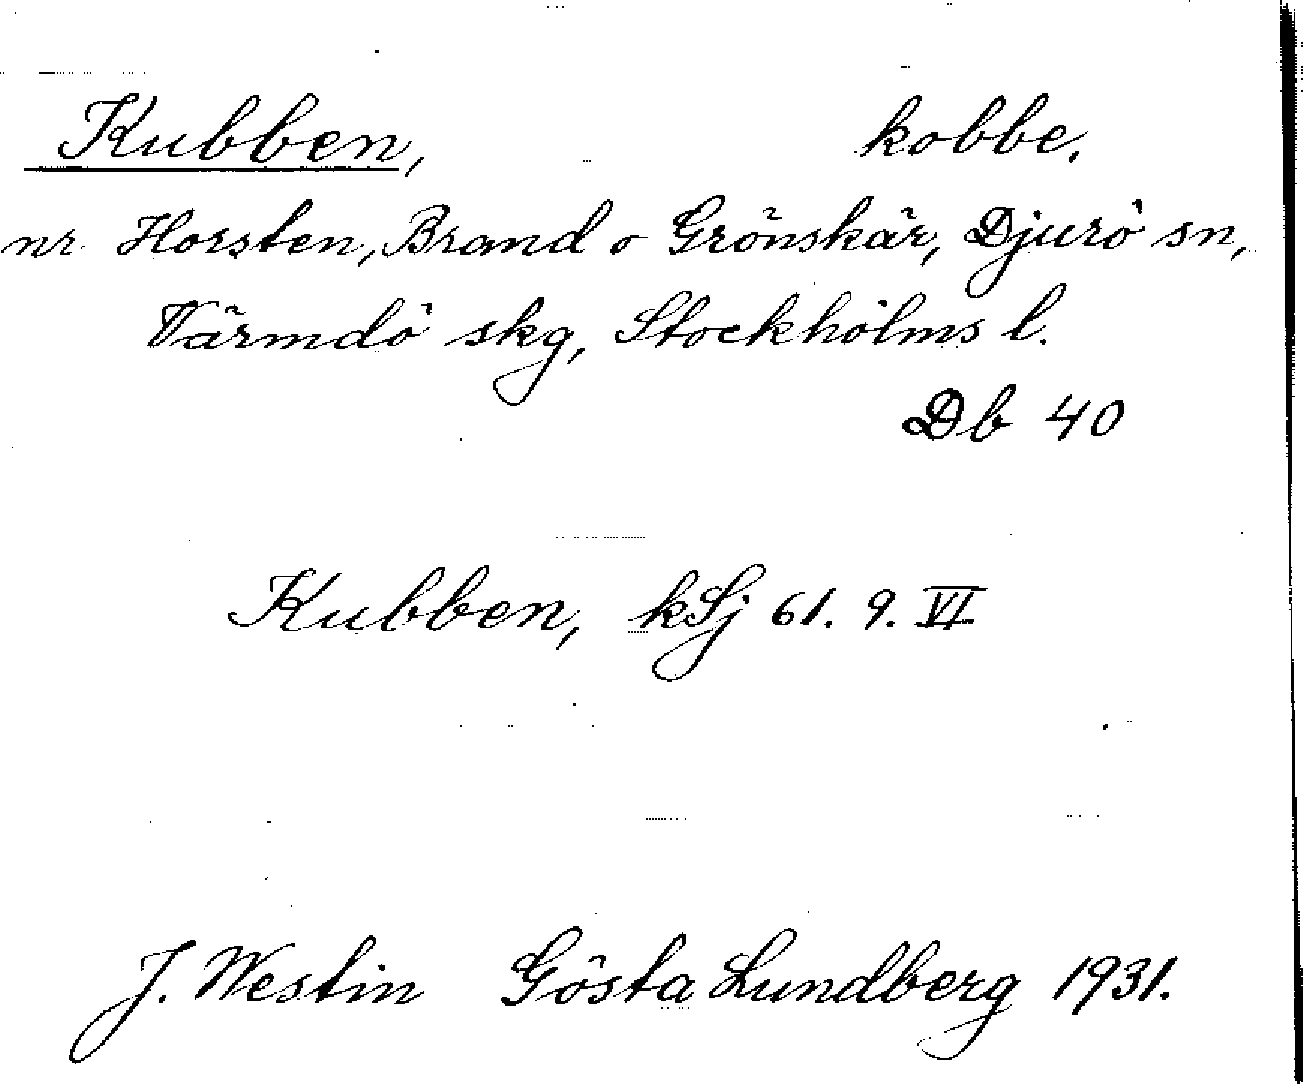 Kubben, kobbe.
nr. Horsten, Brand o Grönskär, Djurö sn,
Värmdö skg, Stockholms l.
Db 40
Kubben, kSj 61. 9. VI
J. Westin Gösta Lundberg 1931.